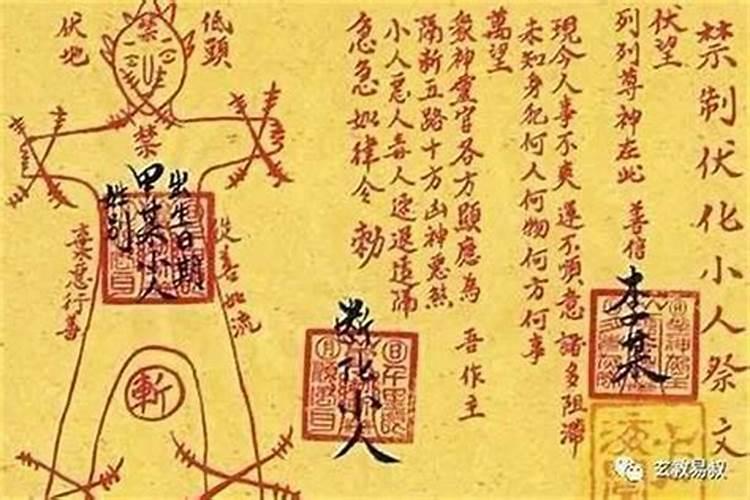 禁制伏化小人祭文
伏望
列列尊神在此 善信
李某
現今人事不爽運不順意諸多阻滯
未知身犯何人何物何方何事
萬望
衆神靈官各方顯應為 吾作主
隔斷五路十方凶神惡煞
小人惡人毒人速退遠隔
急急如律令勅
斷化小人
低頭
伏地
禁
禁
出生日期
甲某小人
性別
從善如流
棄惡行善
斬
玄教易叔